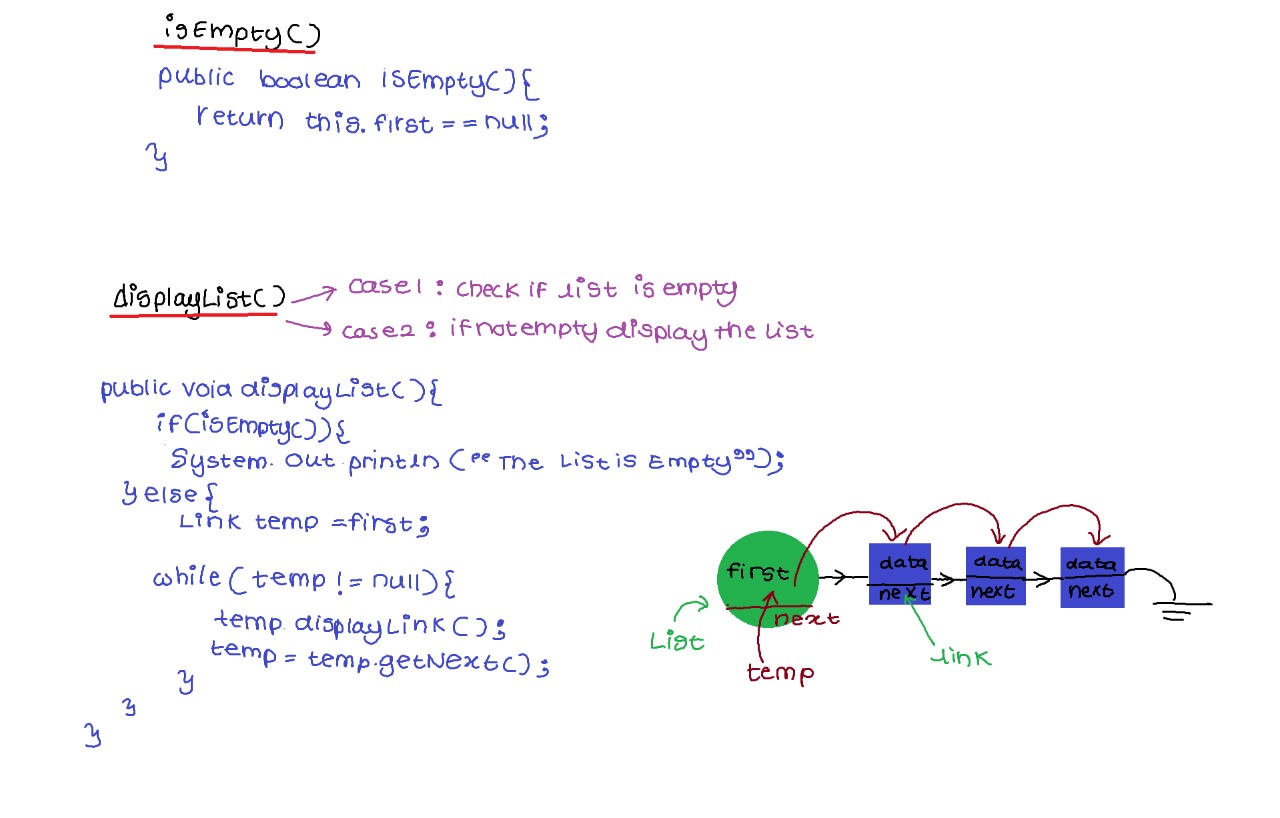 isEmpty()
public boolean isEmpty(){
return this.first == null;
}
displayList()
case1 : check if list is empty
case2 : if not empty display the list
public void displayList(){
if(isEmpty()){
System.out.println("The List is Empty");
} else {
Link temp = first;
while(temp != null){
temp.displayLink();
temp = temp.getNext();
}
}
}
first
next
List
temp
data
next
data
next
data
next
link